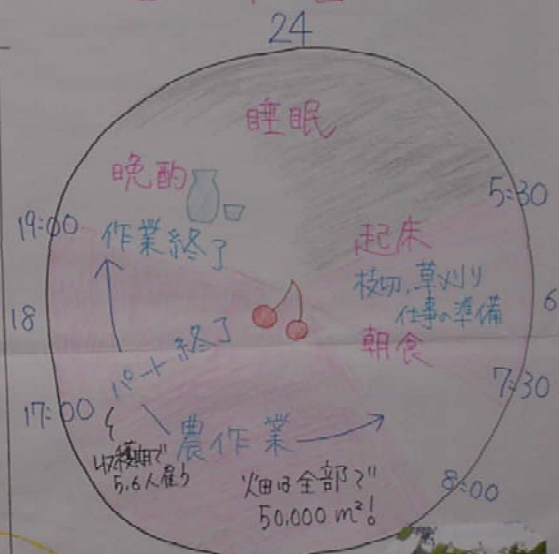 24
睡眠
晩酌
5:30
19:00
作業終了
起床
枝切、草刈り
仕事の準備
6
18
朝食
パート終了
7:30
17:00
農作業
収穫期で
5.6人雇う
8:00
畑は全部で
50,000 m²!